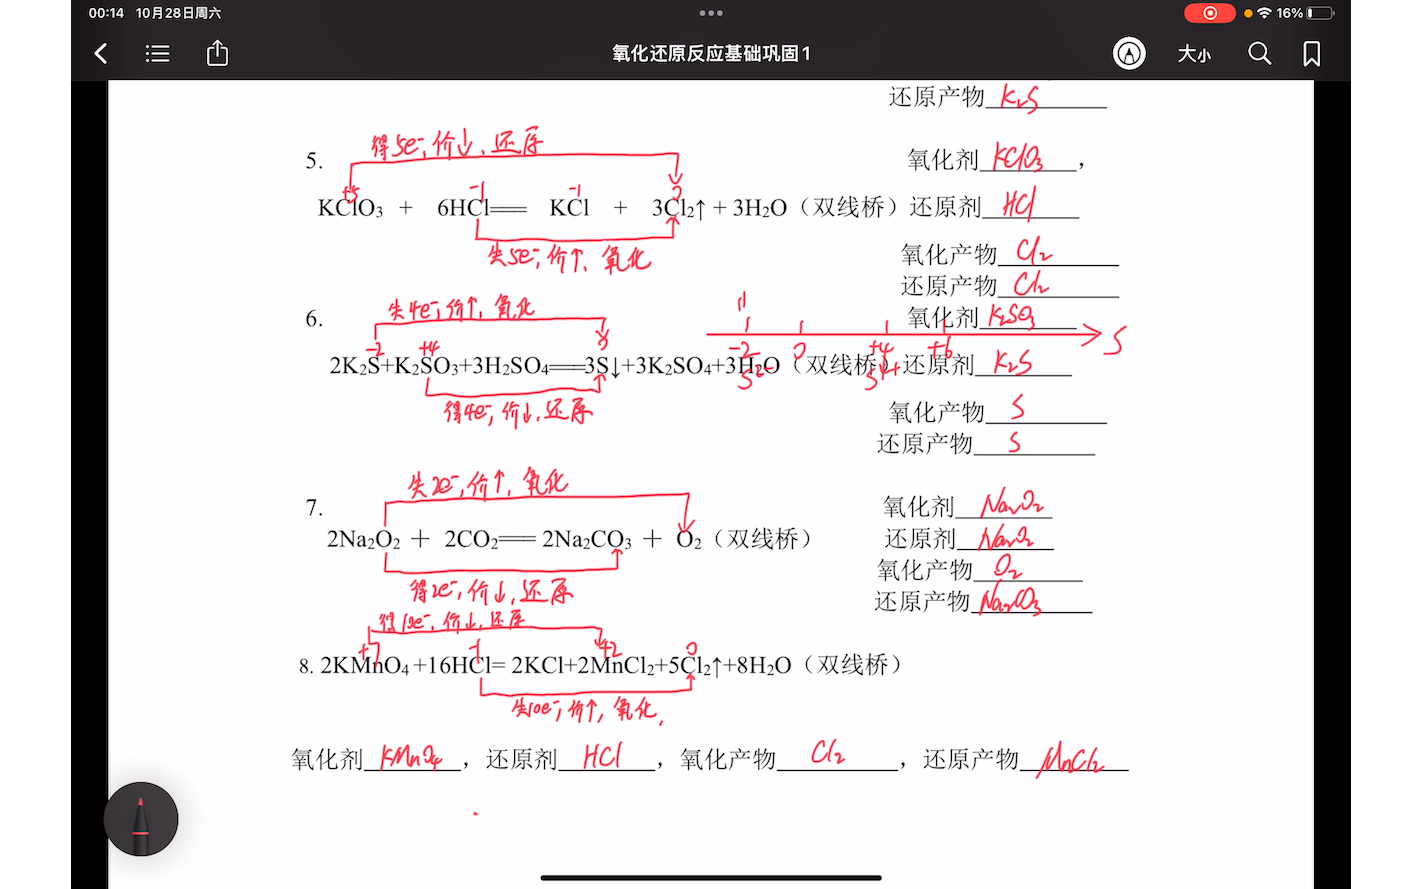 00:14 10月28日周六
16%
氧化还原反应基础巩固1
大小
还原产物 K₂S
5.
得5e⁻, 价↓, 还原
氧化剂 KClO₃ ,
+5 -1 -1 0
KClO₃ + 6HCl══ KCl + 3Cl₂↑ + 3H₂O（双线桥）还原剂 HCl
失5e⁻, 价↑、氧化
氧化产物 Cl₂
还原产物 Cl₂
6.
失4e⁻, 价↑, 氧化
氧化剂 K₂SO₃
-2 +4 0
-2 0 +4 +6 S
2K₂S+K₂SO₃+3H₂SO₄══3S↓+3K₂SO₄+3H₂O（双线桥）还原剂 K₂S
S²⁻ S⁴⁺
得4e⁻, 价↓, 还原
氧化产物 S
还原产物 S
7.
失2e⁻, 价↑, 氧化
氧化剂 Na₂O₂
2Na₂O₂ + 2CO₂══ 2Na₂CO₃ + O₂（双线桥）
还原剂 Na₂O₂
氧化产物 O₂
得2e⁻, 价↓, 还原
还原产物 Na₂CO₃
得10e⁻, 价↓, 还原
+7 -1 +2 0
8. 2KMnO₄ +16HCl= 2KCl+2MnCl₂+5Cl₂↑+8H₂O（双线桥）
失10e⁻, 价↑, 氧化,
氧化剂 KMnO₄ ，还原剂 HCl ，氧化产物 Cl₂ ，还原产物 MnCl₂